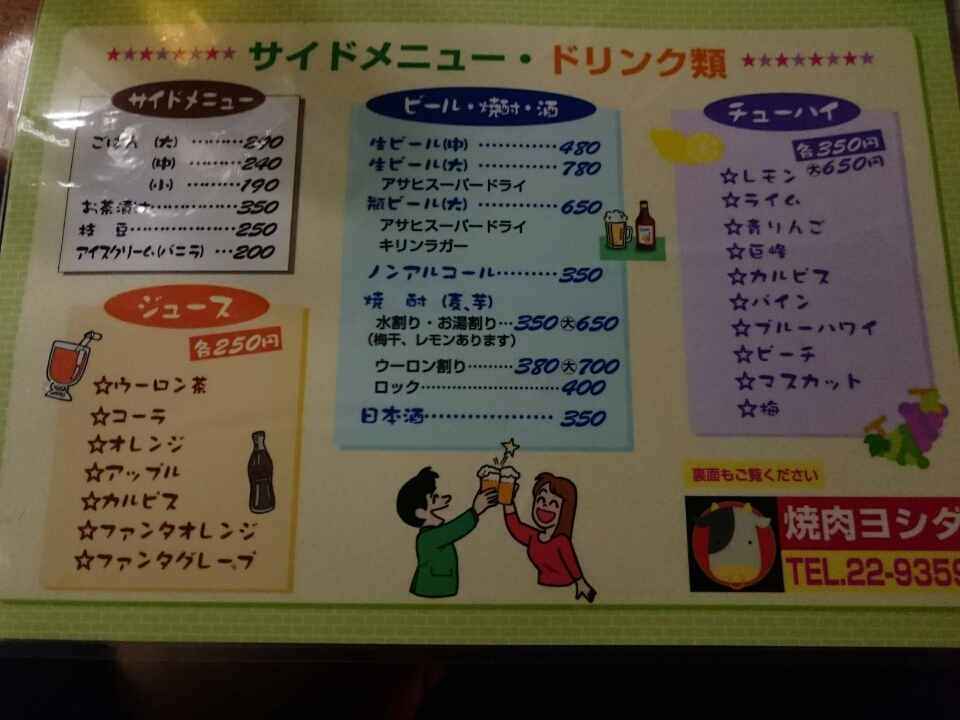 ★★★★★★★★ サイドメニュー・ドリンク類 ★★★★★★★★
サイドメニュー
ごはん (大) ………290
(中) ………240
(小) ………190
お茶漬け………350
枝 豆………250
アイスクリーム(バニラ) …200
ジュース
各250円
☆ウーロン茶
☆コーラ
☆オレンジ
☆アップル
☆カルピス
☆ファンタオレンジ
☆ファンタグレープ
ビール・焼酎・酒
生ビール(中) …………480
生ビール(大) …………780
アサヒスーパードライ
瓶ビール(大) …………650
アサヒスーパードライ
キリンラガー
ノンアルコール………350
焼 酎 (麦、芋)
水割り・お湯割り…350㊅650
(梅干、レモンあります)
ウーロン割り………380㊅700
ロック……………………400
日本酒………………350
チューハイ
各350円
大650円
☆レモン
☆ライム
☆青りんご
☆巨峰
☆カルピス
☆パイン
☆ブルーハワイ
☆ピーチ
☆マスカット
☆梅
裏面もご覧ください
焼肉ヨシダ
TEL.22-9359